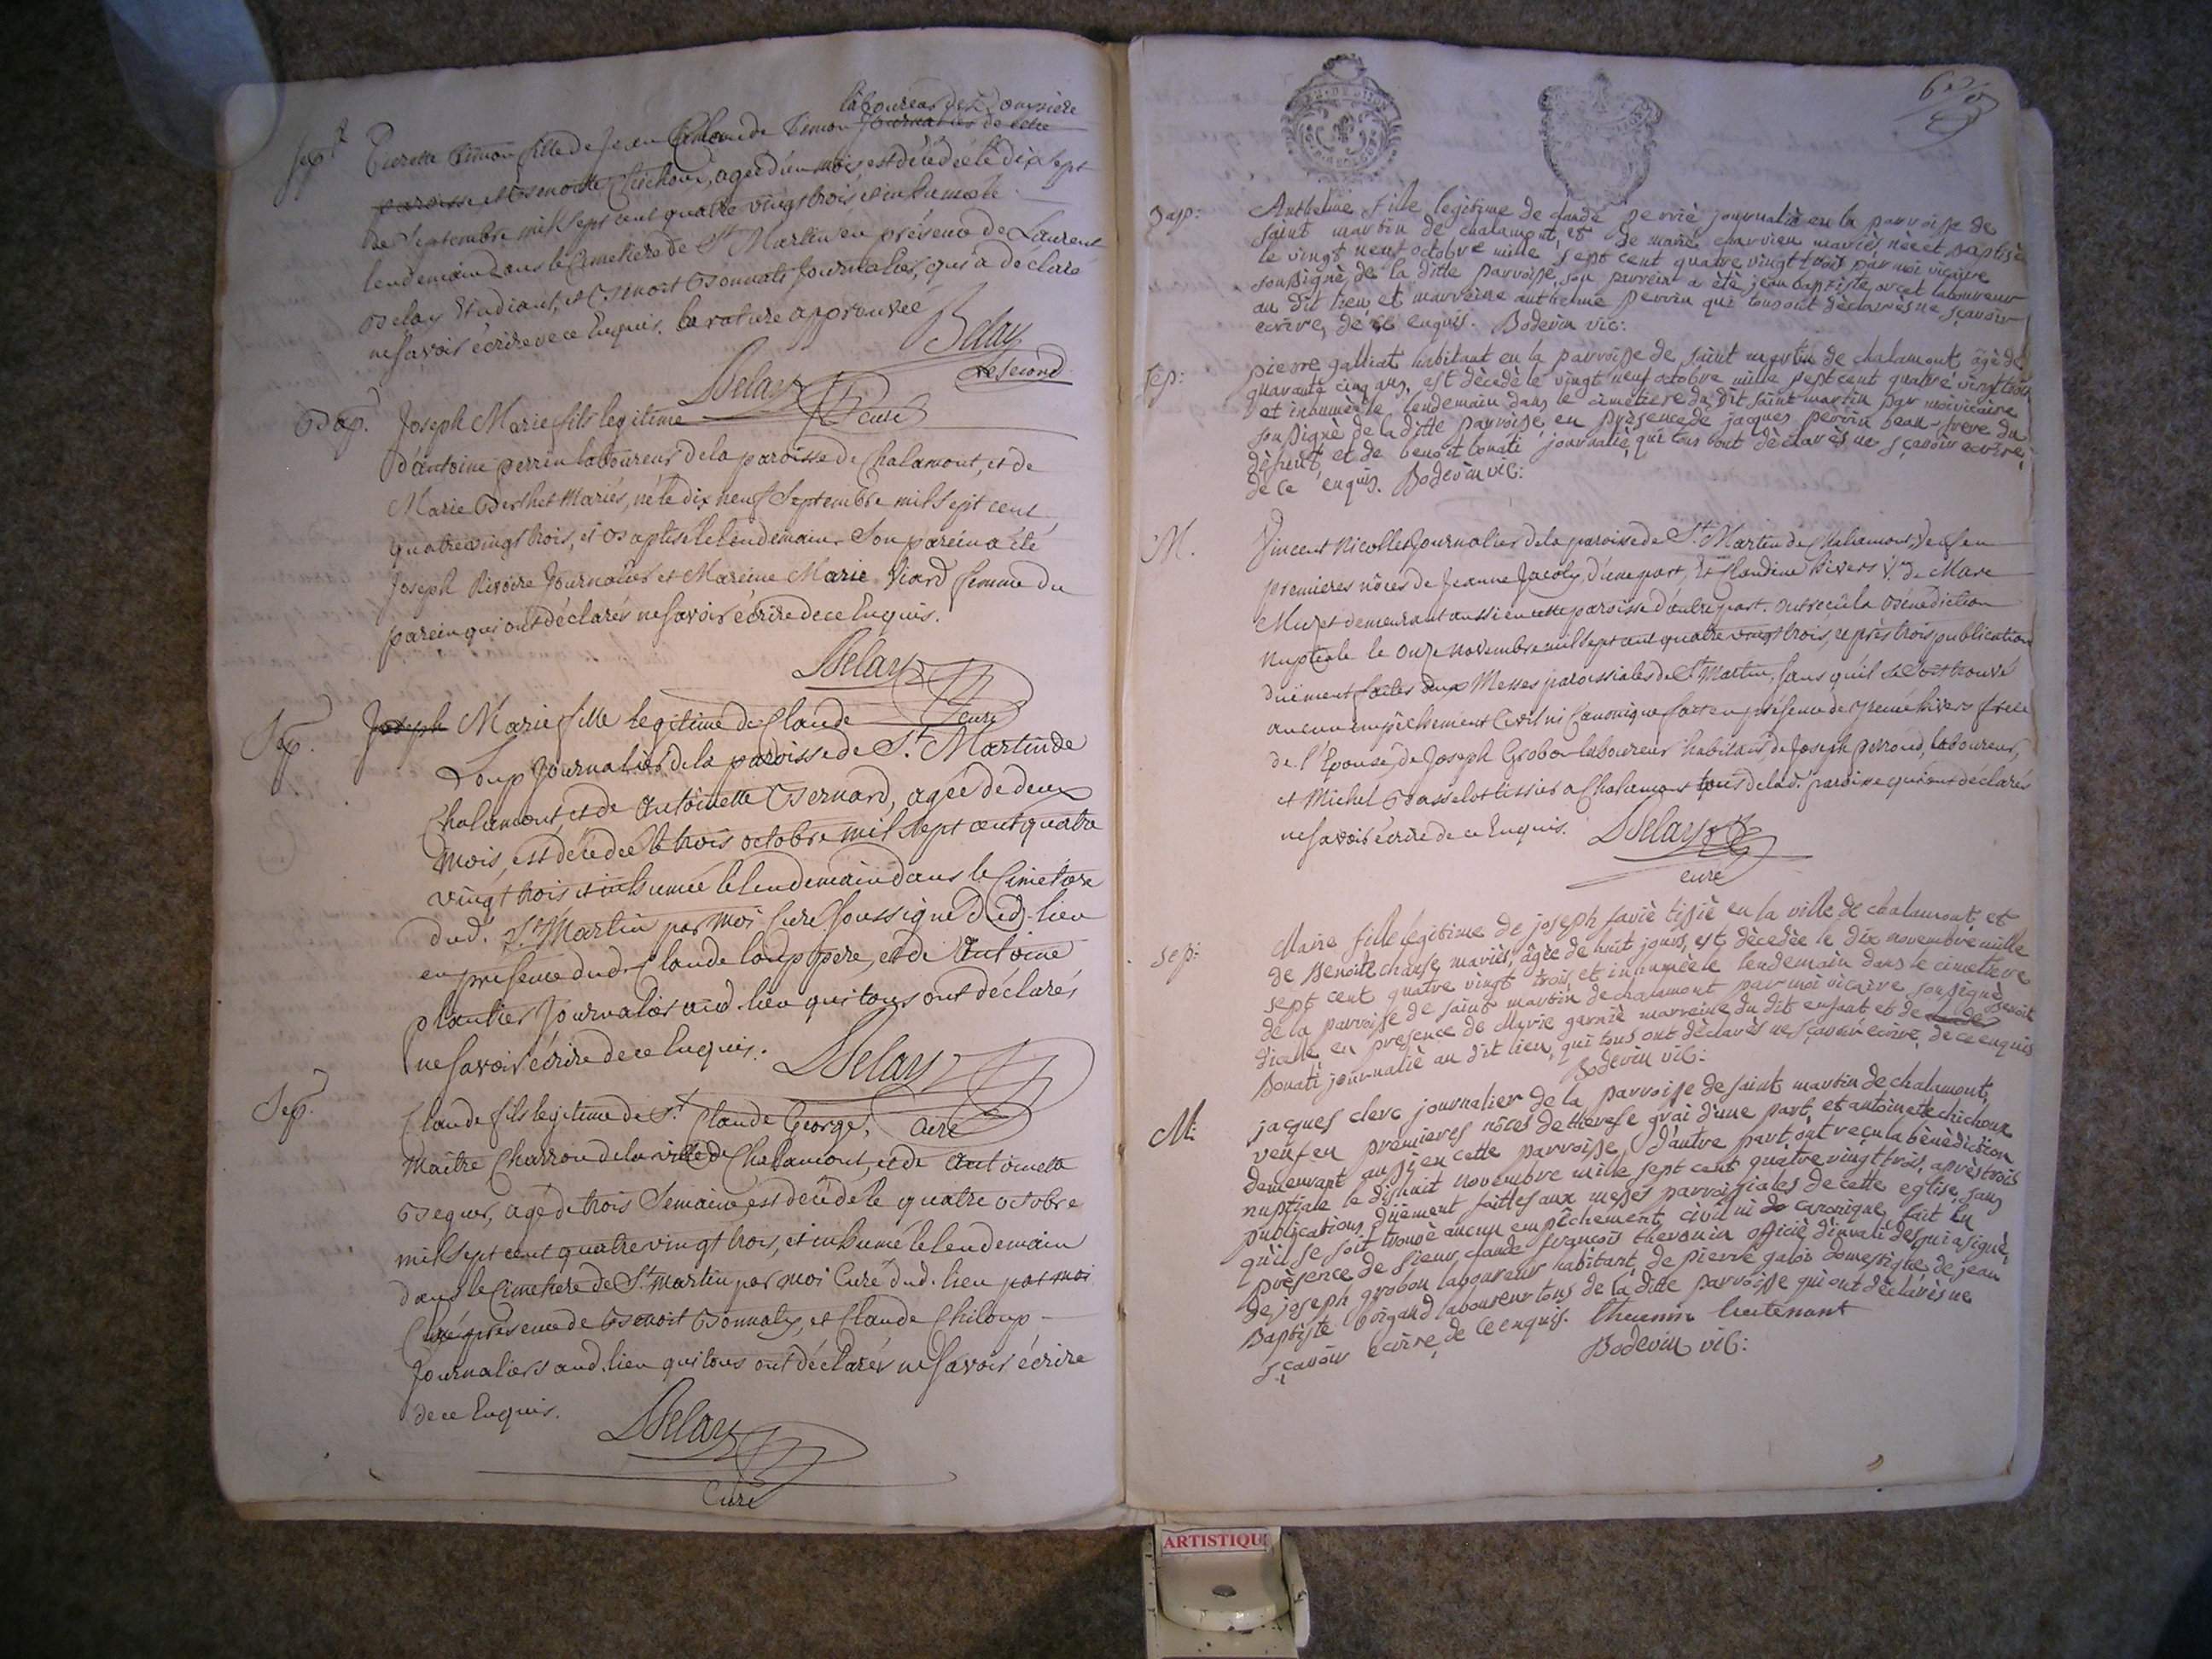 Sep.
laboureur de Doussiere
Pierrette Simon fille de Jean Claude Simon journalier de cette
paroisse et Benoite Chichoux, agée d'un mois, est décédée le dix sept
de Septembre mil sept cent quatre vingt trois et inhumée le
lendemain dans le Cimetière de St Martin en présence de Laurent
Delay Etudiant, et Benoit Bonnati Journalier, qui a déclaré
ne savoir écrire de ce Enquis. la rature approuvée
Delay
le second
Delay
Curé
Bap.
Joseph Marie fils legitime
d'antoine perrin laboureur de la paroisse de Chalamont, et de
Marie Berthet Mariés, né le dix neuf Septembre mil sept cent
quatre vingt trois, et Baptisé le lendemain. Son parein a été
Joseph Rivoire Journalier et Mareine Marie Viard femme du
parein qui ont déclarés ne savoir écrire de ce Enquis.
Delay
Curé
Sep.
Joseph Marie fille legitime de Claude
Loup Journalier de la paroisse de St Martin de
Chalamont, et de Antoinette Bernard, agée de deux
Mois, est décédée le trois octobre mil sept cent quatre
vingt trois et inhumée le lendemain dans le Cimetiere
dud. St Martin par moi Curé soussigné dud. lieu
en présence dud. Claude Loup pere, et de Antoine
plantier Journalier aud. lieu qui tous ont déclarés
ne savoir écrire de ce Enquis.
Delay
Curé
Sep.
Claude fils legitime de Sr. Claude George,
Maître Charron de la ville de Chalamont, et de Antoinette
Beguer, agé de trois Semaine est décédé le quatre octobre
mil sept cent quatre vingt trois, et inhumé le lendemain
dans le Cimetiere de St Martin par moi Curé dud. lieu par moi
Curé présence de Benoit Bonnaty, et Claude Chiloup
Journaliers aud. lieu qui tous ont déclarés ne savoir écrire
de ce Enquis.
Delay
Curé
Bap:
Anthelme fille legitime de claude perriè journaliè en la parroisse de
saint martin de chalamont, et de marie charvieu mariès nèe et baptisèe
le vingt neuf octobre mille sept cent quatre vingt trois par moi vicaire
soussignè de la ditte parroisse, son parrein a ètè jean baptiste orcet laboureur
au dit lieu, et marreine anthelme perrin qui tous ont dèclarès ne sçavoir
ecrire, de ce enquis. Bodevin vic:
Sep:
pierre galliat habitant en la parroisse de saint martin de chalamont, agè de
quarante cinq ans, est dècedè le vingt neuf octobre mille sept cent quatre vingt trois
et inhumè le lendemain dans le cimetiere du dit saint martin par moi vicaire
soussignè de la ditte parroisse en prèsence de jacques perrin beau-frere du
dèfunt, et de benoit bonati journaliè, qui tous ont dèclarès ne sçavoir ecrire,
de ce enquis. Bodevin vic:
M.
Vincent Nicollet Journalier de la paroisse de St. Martin de Chalamont, Veuf en
premieres nôces de Jeanne Jacoly, d'une part, et Claudine hivers Ve de Marc
Muzet demeurant aussi en cette paroisse d'autre part. ont reçu la Bénédiction
Nuptiale le onze novembre mil sept cent quatre vingt trois, après trois publication
duement faites aux Messes paroissiales de St Martin, sans qu'il se soit trouvé
aucun empêchement Civil ni Canonique fait en présence de hivers frere
de l'Epouse, de Joseph Grobon laboureur habitant, de Joseph perroud, laboureur,
et Michel Basselot tissier a Chalamont tous de lad. paroisse qui ont declarés
ne savoir écrire de ce Enquis.
Delay
curé
Sep:
Marie fille legitime de joseph saviè tissiè en la ville de chalamont, et
de Benoite chanse mariès, âgèe de huit jours, est dècedèe le dix novembre mille
sept cent quatre vingt trois, et inhumèe le lendemain dans le cimetiere
de la parroisse de saint martin de chalamont par moi vicaire soussignè
d'icelle, en presence de Marie garniè marreine du dit enfant et de claude benoit
Bonati journaliè au dit lieu, qui tous ont dèclarès ne sçavoir ecrire, de ce enquis
Bodevin vic:
M:
jacques clerc journalier de la parroisse de saint martin de chalamont,
veuf en premieres nôces de therese grài d'une part, et antoinette chichoux
demeurant aussi en cette parroisse d'autre part, ont reçu la bènèdiction
nuptiale le dixhuit novembre mille sept cent quatre vingt trois, après trois
publications, dûement faittes aux messes parroissiales de cette eglise, sans
qu'il se soit trouvè aucun empêchement civil ni de canonique, fait en
prèsence de sieur claude françois thevenin officiè d'invalides qui a signè,
de joseph grobon laboureur habitant, de pierre galoir domestique de jean
Baptiste brigand laboureur tous de la ditte parroisse qui ont dèclarès ne
sçavoir ecrire, de ce enquis. thevenin lieutenant
Bodevin vic:
ARTISTIQU